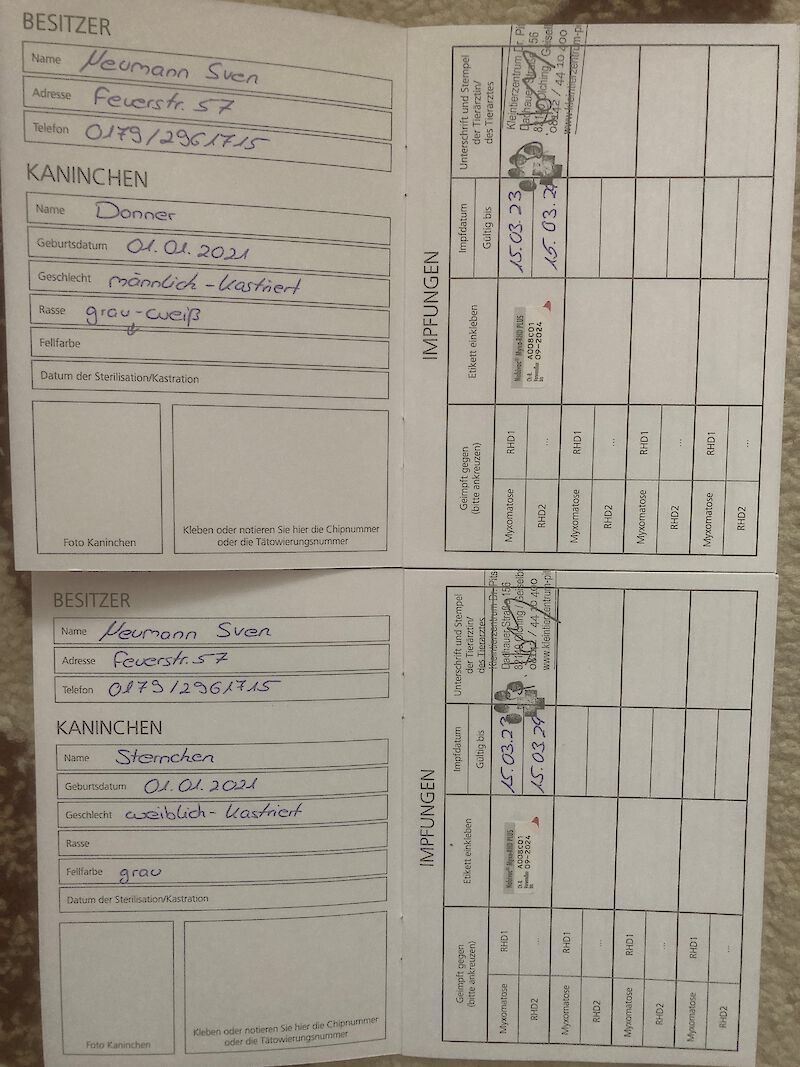 BESITZER
Name Neumann Sven
Adresse Feuerstr. 57
Telefon 0179/2961715
KANINCHEN
Name Donner
Geburtsdatum 01.01.2021
Geschlecht männlich - kastriert
Rasse grau-weiß
Fellfarbe
Datum der Sterilisation/Kastration
Foto Kaninchen
Kleben oder notieren Sie hier die Chipnummer
oder die Tätowierungsnummer
IMPFUNGEN
Geimpft gegen
(bitte ankreuzen)
Etikett einkleben
Impfdatum
Gültig bis
Unterschrift und Stempel
der Tierärztin/
des Tierarztes
Myxomatose RHD1
RHD2 ...
Nobivac® Myxo-RHD PLUS
A008C01
09-2024
15.03.23
15.03.2
Kleintierzentrum Dr.
Dachauer Straße 156
08142 / 44 10 400
Myxomatose RHD1
RHD2 ...
Myxomatose RHD1
RHD2 ...
Myxomatose RHD1
RHD2 ...
BESITZER
Name Neumann Sven
Adresse Feuerstr. 57
Telefon 0179/2961715
KANINCHEN
Name Sternchen
Geburtsdatum 01.01.2021
Geschlecht weiblich - kastriert
Rasse
Fellfarbe grau
Datum der Sterilisation/Kastration
Foto Kaninchen
Kleben oder notieren Sie hier die Chipnummer
oder die Tätowierungsnummer
IMPFUNGEN
Geimpft gegen
(bitte ankreuzen)
Etikett einkleben
Impfdatum
Gültig bis
Unterschrift und Stempel
der Tierärztin/
des Tierarztes
Myxomatose RHD1
RHD2 ...
Nobivac® Myxo-RHD PLUS
A008C01
09-2024
15.03.23
15.03.24
Kleintierzentrum Dr.
Dachauer Straße 156
08142 / 44 10 400
Myxomatose RHD1
RHD2 ...
Myxomatose RHD1
RHD2 ...
Myxomatose RHD1
RHD2 ...